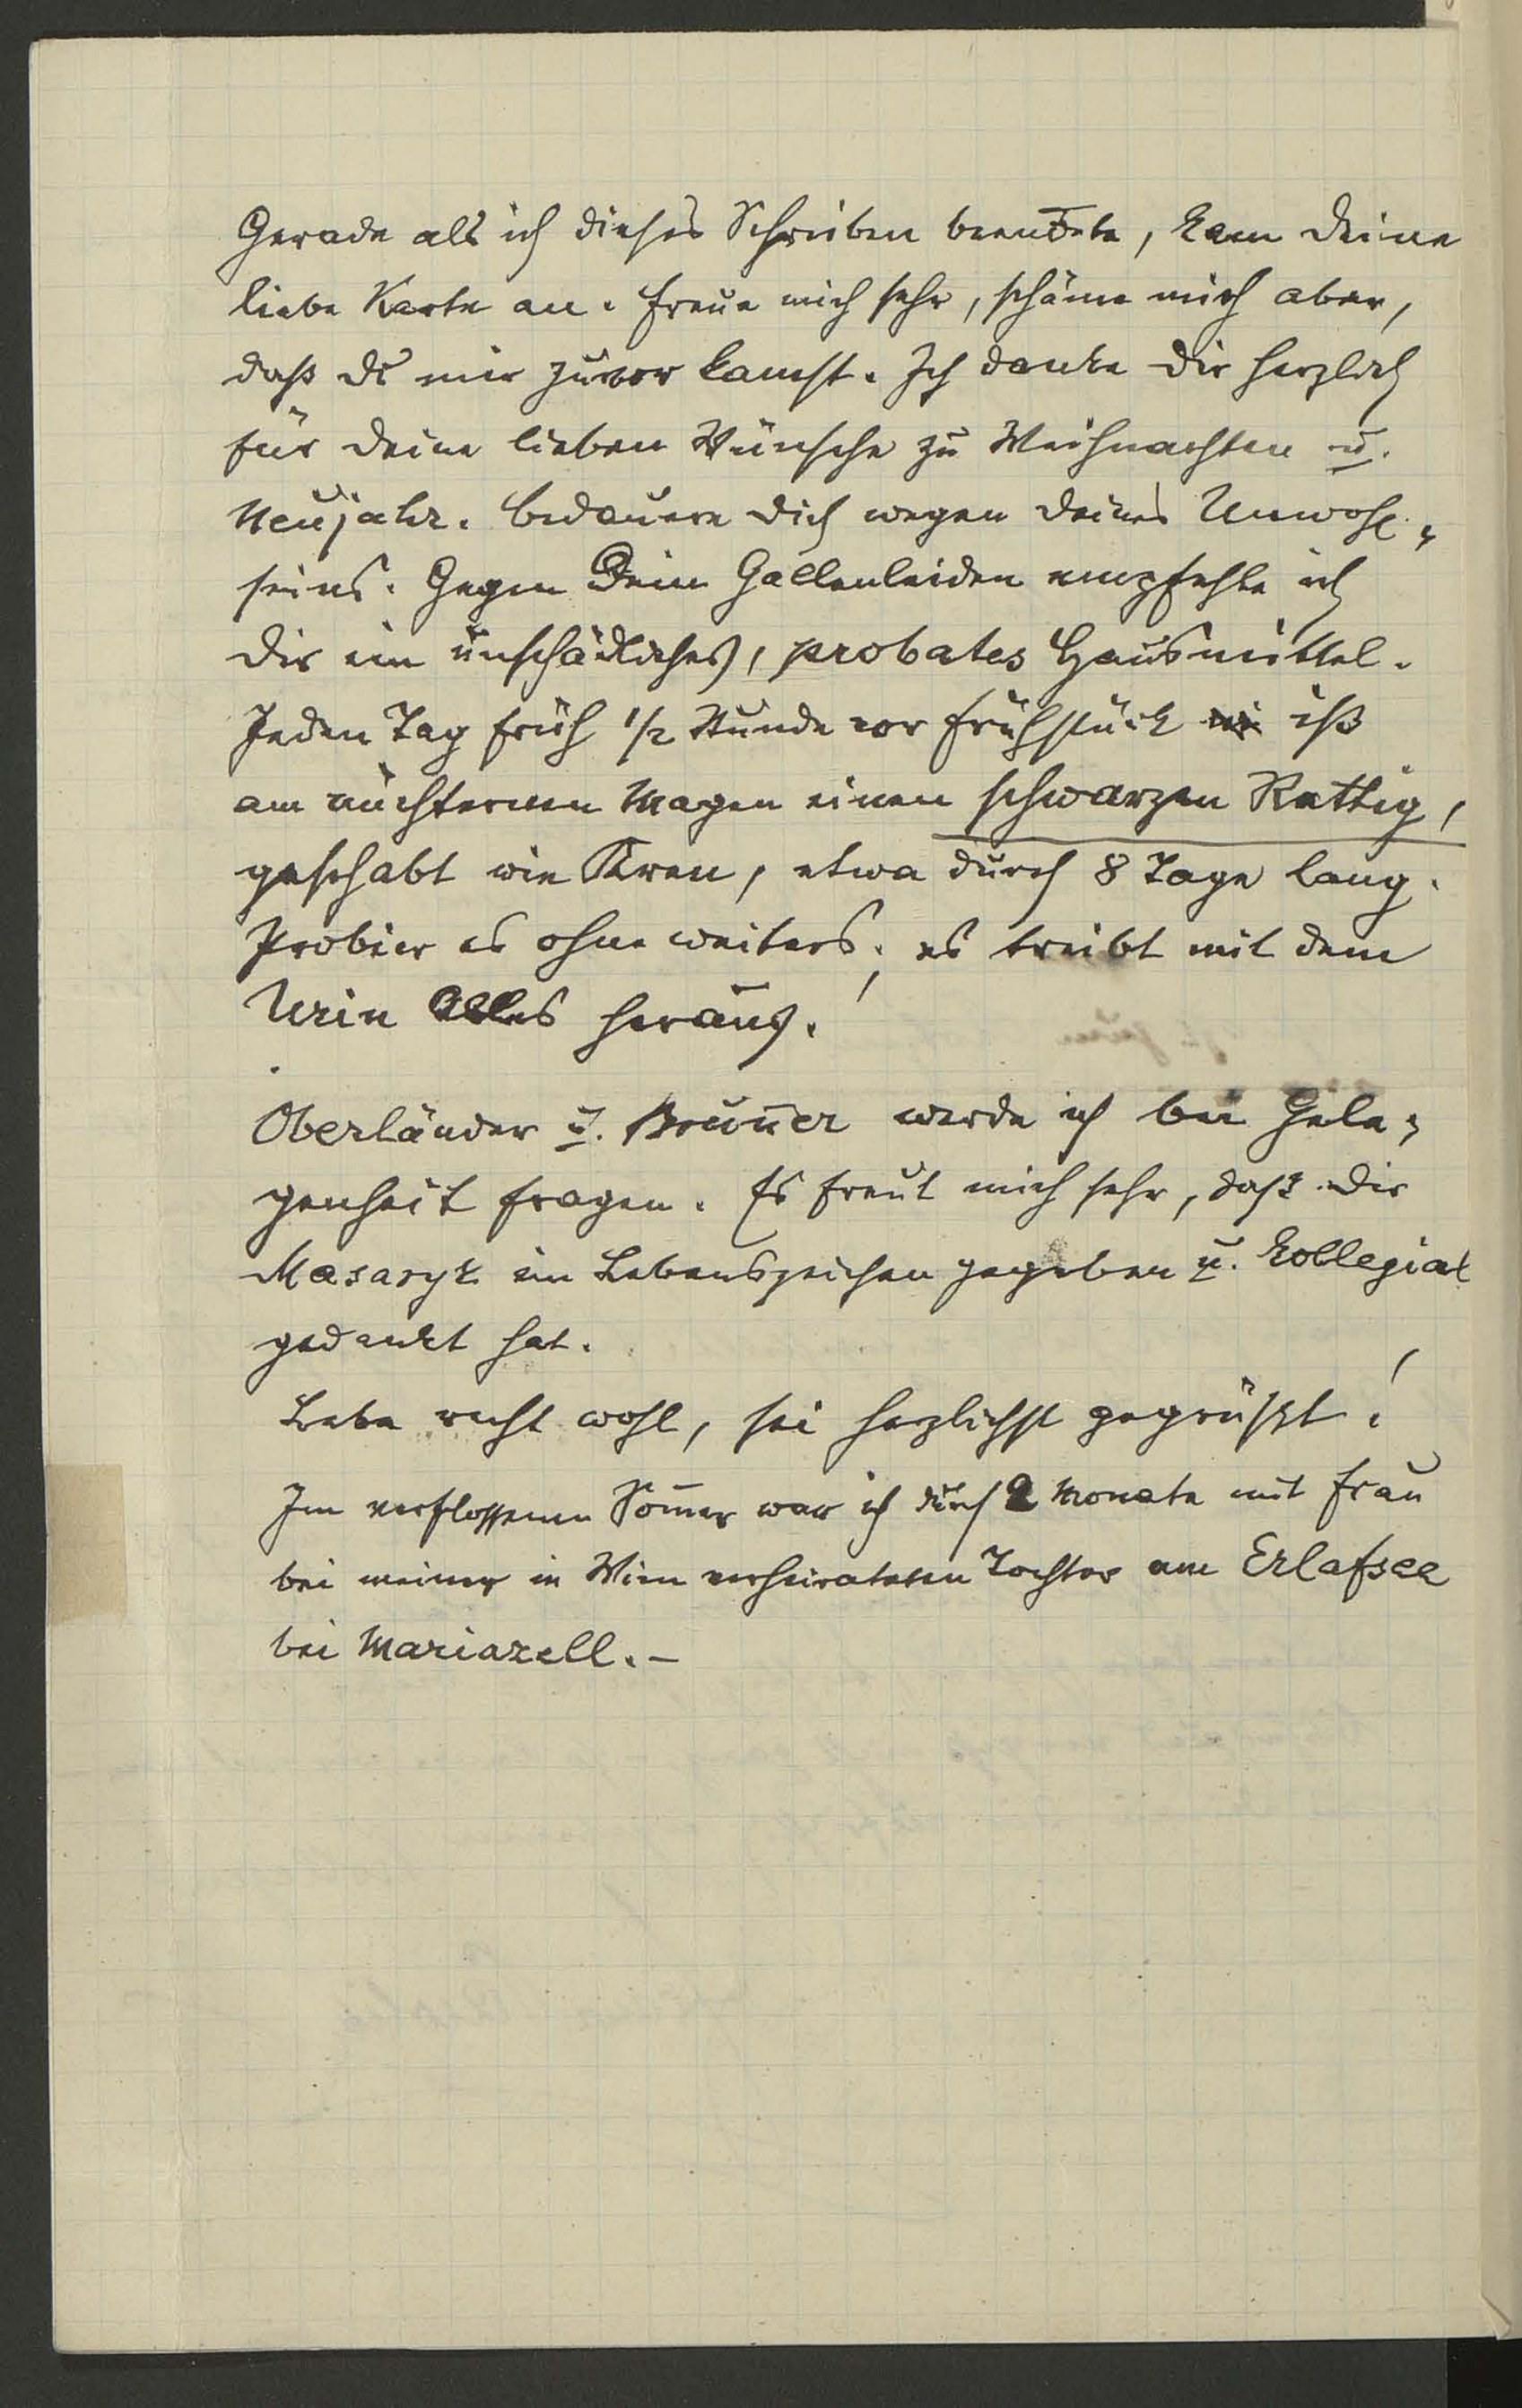 Gerade als ich dieses Schreiben beendete, kam Deine
liebe Karte an. Freue mich sehr, schäme mich aber,
daß Du mir zuvor kamst. Ich danke Dir herzlich
für Deine lieben Wünsche zu Weihnachten u.
Neujahr. Bedauere Dich wegen Deines Unwohl-
seins. Gegen Dein Gallenleiden empfehle ich
Dir ein unschädliches, probates Hausmittel.
Jeden Tag früh 1/2 Stunde vor Frühstück iß
am nüchternen Magen einen schwarzen Rettig,
geschabt wie Kren, etwa durch 8 Tage lang.
Probier es ohne weiters; es treibt mit dem
Urin Alles heraus!
Oberländer u. Brunner werde ich bei Gele-
genheit fragen. Es freut mich sehr, daß Dir
Masaryk ein Lebenszeichen gegeben u. kollegial
gedankt hat.
Lebe recht wohl, sei herzlichst gegrüßt!
Im verflossenen Som̅er war ich durch 2 Monate mit Frau
bei meiner in Wien verheirateten Tochter am Erlafsee
bei Mariazell. –